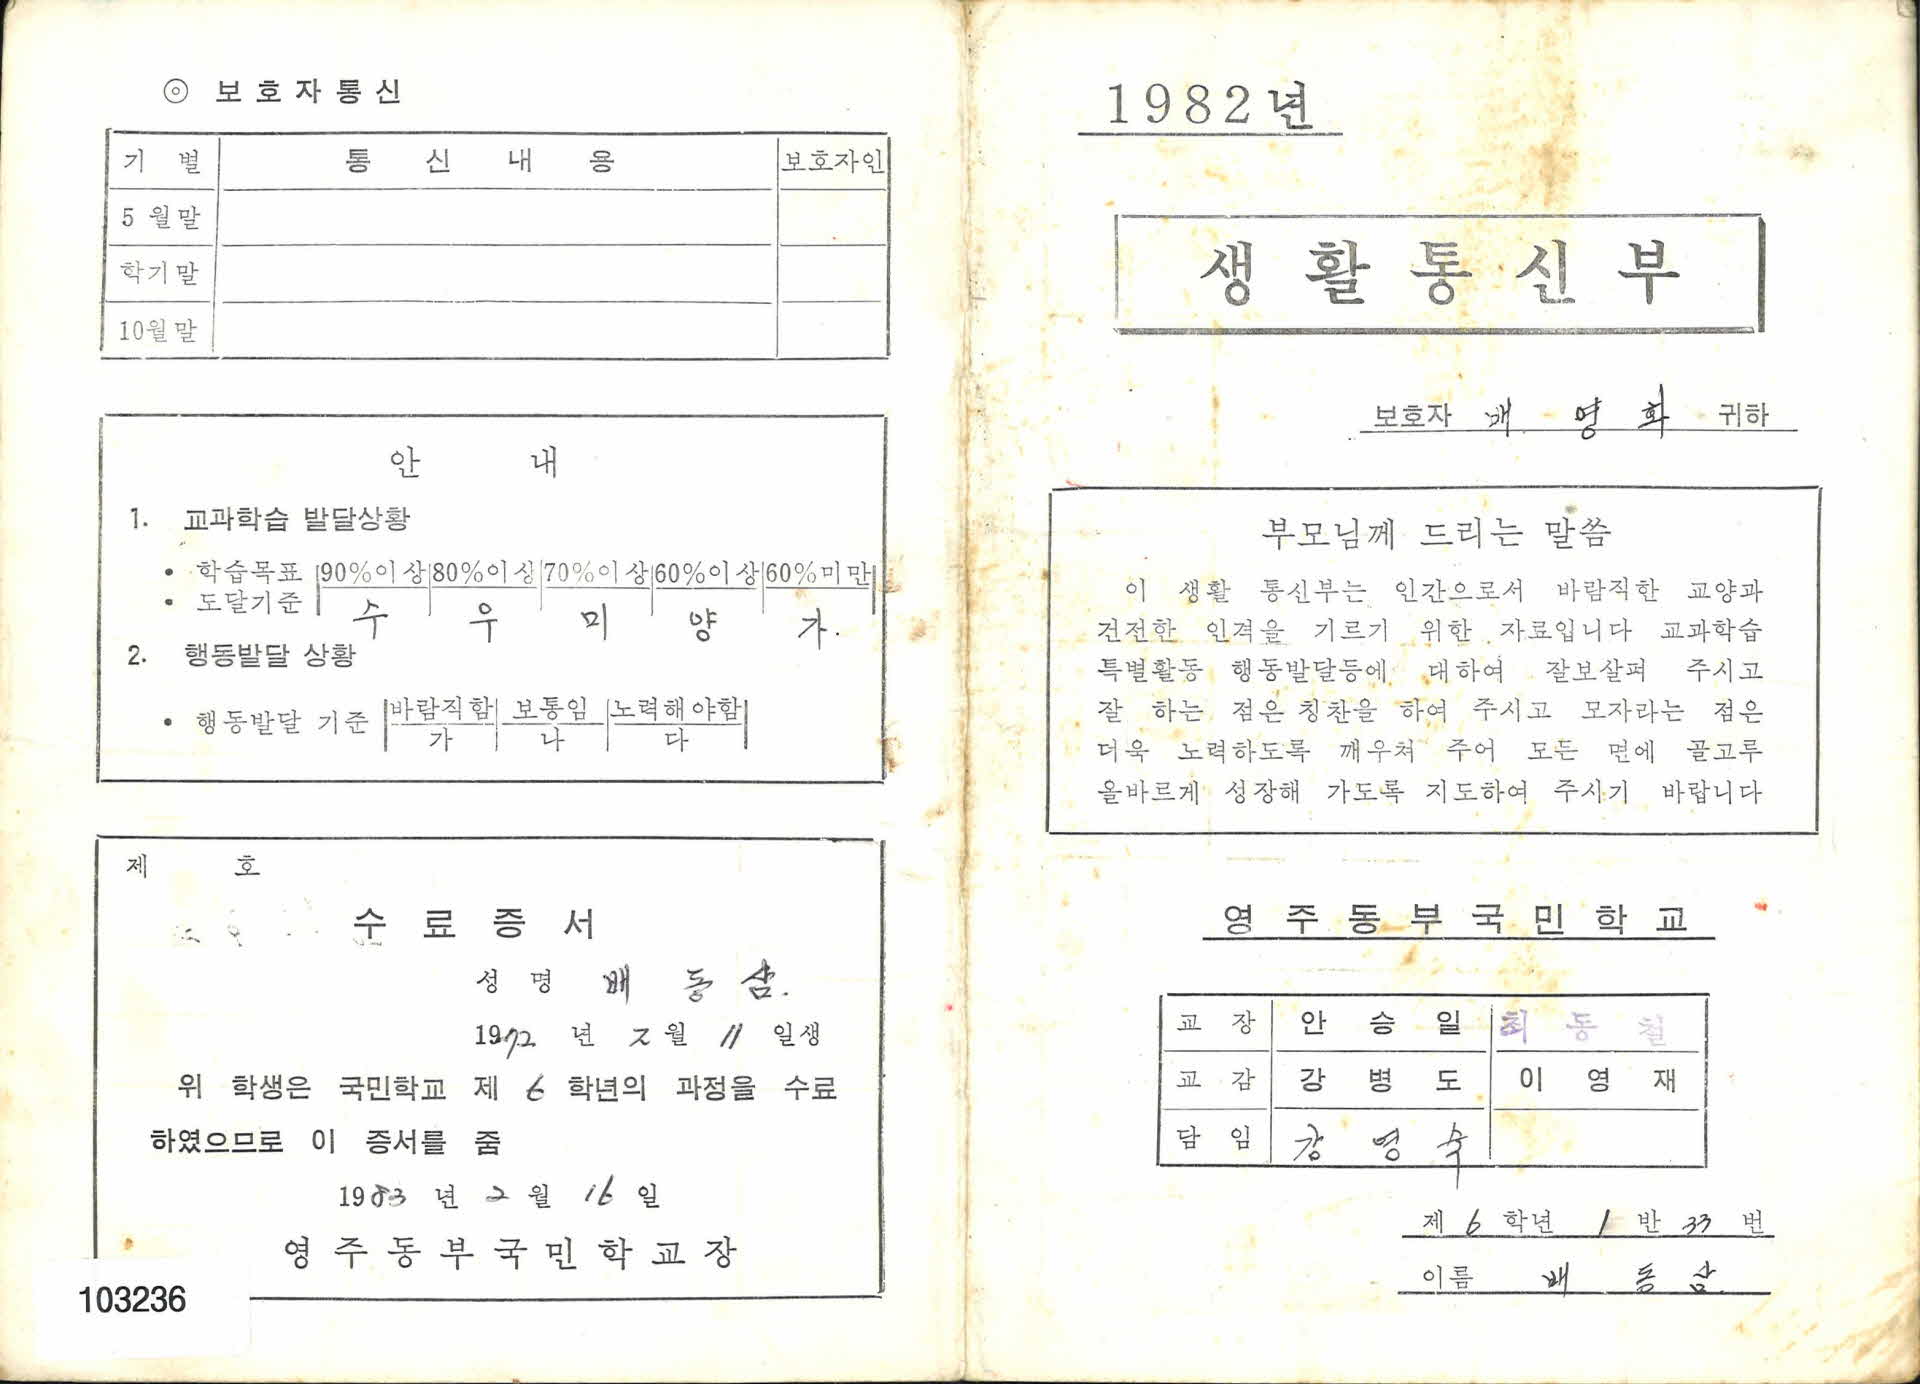 ◎ 보호자통신
기 별 통 신 내 용 보호자인
5 월말
학기말
10월말
안 내
1. 교과학습 발달상황
• 학습목표 90%이상 80%이상 70%이상 60%이상 60%미만
• 도달기준 수 우 미 양 가.
2. 행동발달 상황
• 행동발달 기준 바람직함 보통임 노력해야함
가 나 다
제 호
수 료 증 서
성 명 배 동 삼.
1972 년 2 월 11 일생
위 학생은 국민학교 제 6 학년의 과정을 수료
하였으므로 이 증서를 줌
1983 년 2 월 16 일
영 주 동 부 국 민 학 교 장
103236
1982년
생 활 통 신 부
보호자 배 영 화 귀하
부모님께 드리는 말씀
이 생활 통신부는 인간으로서 바람직한 교양과
건전한 인격을 기르기 위한 자료입니다 교과학습
특별활동 행동발달등에 대하여 잘보살펴 주시고
잘 하는 점은 칭찬을 하여 주시고 모자라는 점은
더욱 노력하도록 깨우쳐 주어 모든 면에 골고루
올바르게 성장해 가도록 지도하여 주시기 바랍니다
영 주 동 부 국 민 학 교
교 장 안 승 일 최 동 철
교 감 강 병 도 이 영 재
담 임 강 영 숙
제 6 학년 1 반 33 번
이름 배 동 삼.